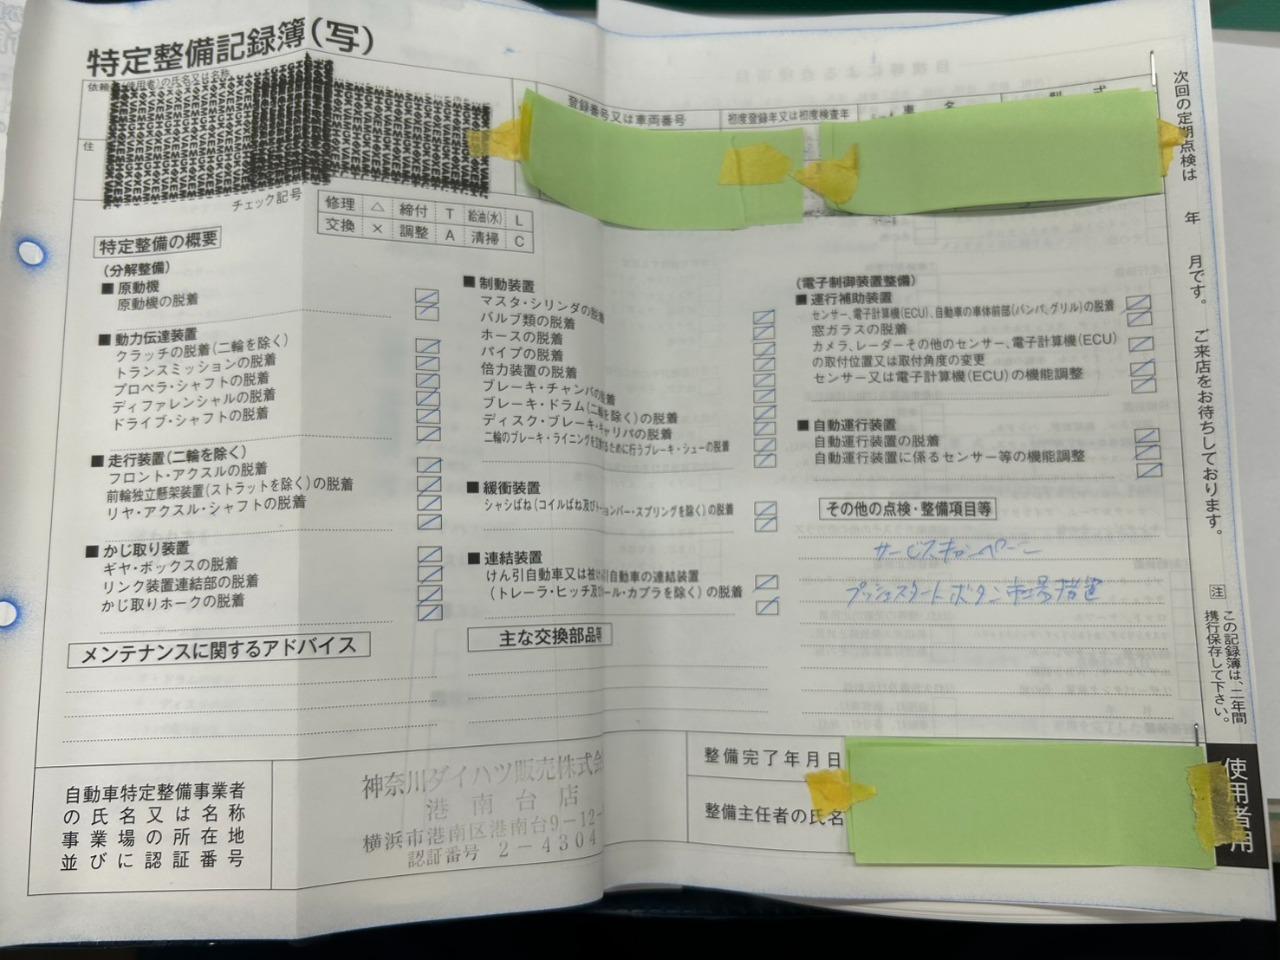 特定整備記録簿(写)
依頼者(使用者)の氏名又は名称
住
登録番号又は車両番号
初度登録年又は初度検査年
車 名
型 式
チェック記号
修理 △ 締付 T 給油(水) L
交換 × 調整 A 清掃 C
特定整備の概要
(分解整備)
■ 原動機
原動機の脱着
■ 動力伝達装置
クラッチの脱着(二輪を除く)
トランスミッションの脱着
プロペラ・シャフトの脱着
ディファレンシャルの脱着
ドライブ・シャフトの脱着
■ 走行装置(二輪を除く)
フロント・アクスルの脱着
前輪独立懸架装置(ストラットを除く)の脱着
リヤ・アクスル・シャフトの脱着
■ かじ取り装置
ギヤ・ボックスの脱着
リンク装置連結部の脱着
かじ取りホークの脱着
■ 制動装置
マスタ・シリンダの脱着
バルブ類の脱着
ホースの脱着
パイプの脱着
倍力装置の脱着
ブレーキ・チャンバの脱着
ブレーキ・ドラム(二輪を除く)の脱着
ディスク・ブレーキ・キャリパの脱着
二輪のブレーキ・ライニングを交換するために行うブレーキ・シューの脱着
■ 緩衝装置
シャシばね(コイルばね及びトーションバー・スプリングを除く)の脱着
■ 連結装置
けん引自動車又は被けん引自動車の連結装置
(トレーラ・ヒッチ及びボール・カプラを除く)の脱着
(電子制御装置整備)
■ 運行補助装置
センサー、電子計算機(ECU)、自動車の車体前部(バンパ、グリル)の脱着
窓ガラスの脱着
カメラ、レーダーその他のセンサー、電子計算機(ECU)
の取付位置又は取付角度の変更
センサー又は電子計算機(ECU)の機能調整
■ 自動運行装置
自動運行装置の脱着
自動運行装置に係るセンサー等の機能調整
その他の点検・整備項目等
サービスキャンペーン
プッシュスタートボタン
メンテナンスに関するアドバイス
主な交換部品等
自動車特定整備事業者
の氏名又は名称
事業場の所在地
並びに認証番号
神奈川ダイハツ販売株式会
港南台店
横浜市港南区港南台9-12-
認証番号 2-4304
整備完了年月日
整備主任者の氏名
次回の定期点検は 年 月です。 ご来店をお待ちしております。
注 この記録簿は、二年間
携行保存して下さい。
使用者用